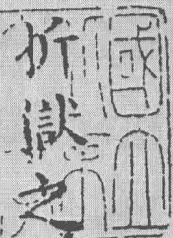 國立
折獄之